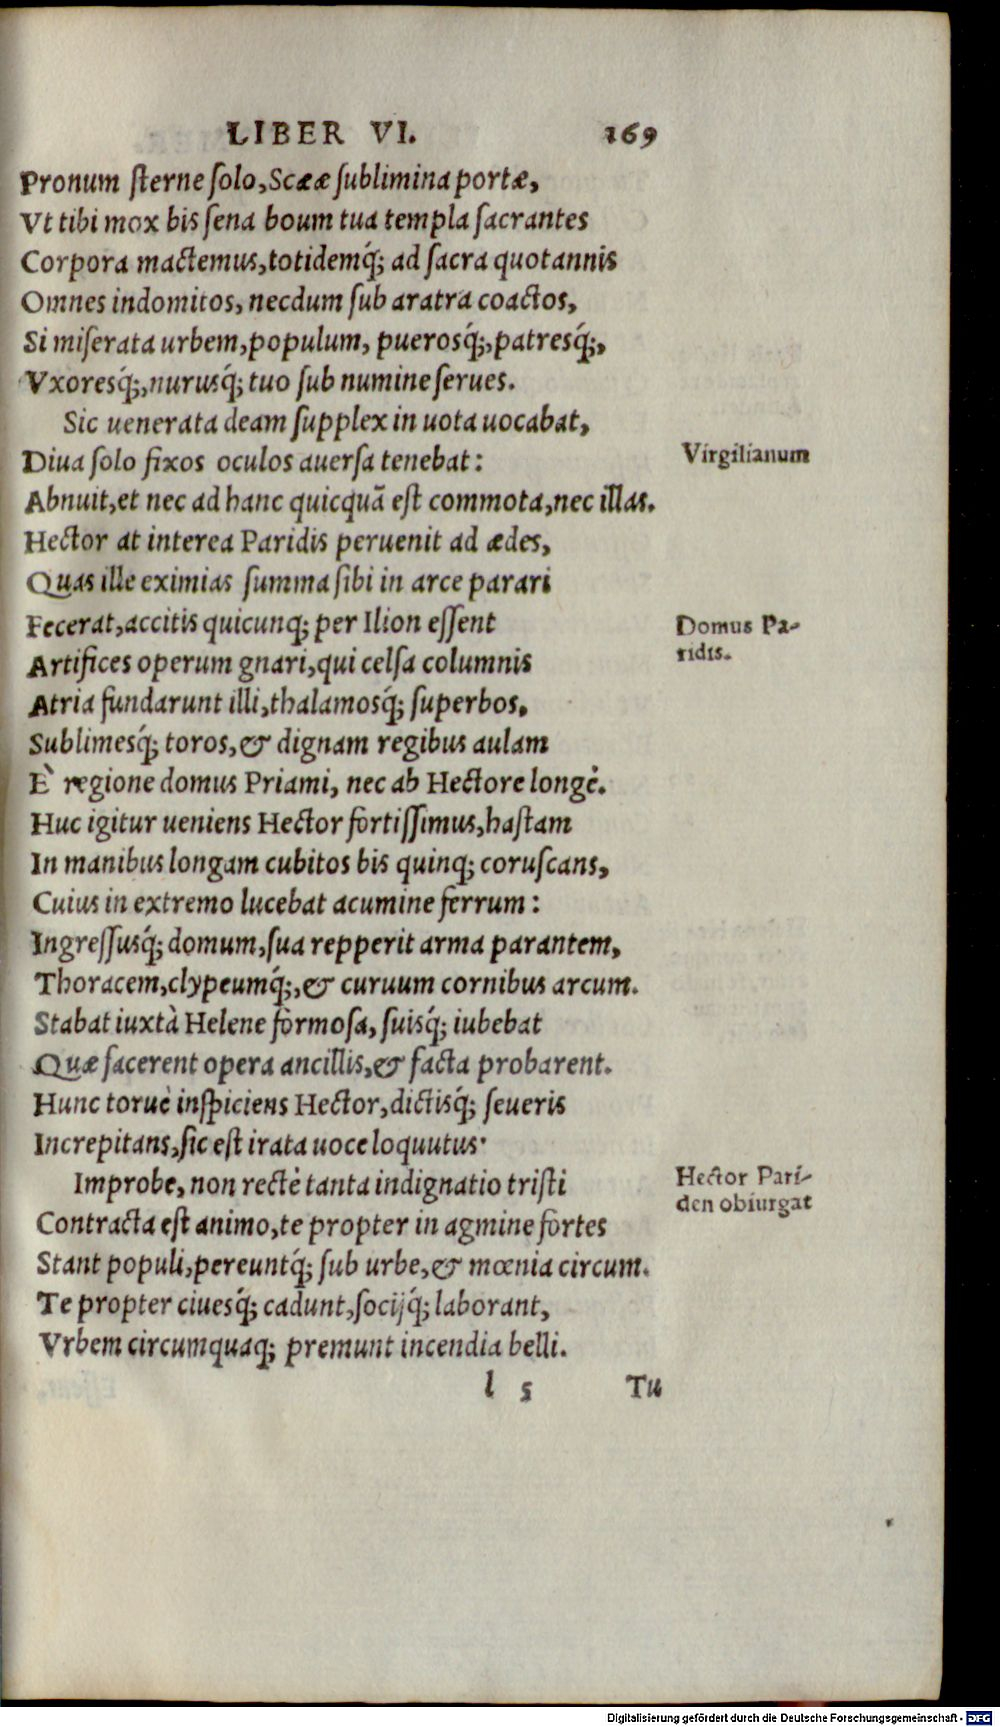 LIBER VI. 169
Pronum ſterne ſolo, Scææ ſublimina portæ,
Vt tibi mox bis ſena boum tua templa ſacrantes
Corpora mactemus, totidemq́; ad ſacra quotannis
Omnes indomitos, necdum ſub aratra coactos,
Si miſerata urbem, populum, puerosq́;, patresq́;,
Vxoresq́;, nurusq́; tuo ſub numine ſerues.
Sic uenerata deam ſupplex in uota uocabat,
Diua ſolo fixos oculos auerſa tenebat:
Virgilianum
Abnuit, et nec ad hanc quicquā eſt commota, nec illas.
Hector at interea Paridis peruenit ad ædes,
Quas ille eximias ſumma ſibi in arce parari
Fecerat, accitis quicunq; per Ilion eſſent
Domus Pa-
ridis.
Artifices operum gnari, qui celſa columnis
Atria fundarunt illi, thalamosq́; ſuperbos,
Sublimesq́; toros, & dignam regibus aulam
È regione domus Priami, nec ab Hectore longè.
Huc igitur ueniens Hector fortiſſimus, haſtam
In manibus longam cubitos bis quinq; coruſcans,
Cuius in extremo lucebat acumine ferrum:
Ingreſſusq́; domum, ſua repperit arma parantem,
Thoracem, clypeumq́;, & curuum cornibus arcum.
Stabat iuxtà Helene formoſa, ſuisq́; iubebat
Quæ facerent opera ancillis, & facta probarent.
Hunc toruè inſpiciens Hector, dictisq́; ſeueris
Increpitans, ſic eſt irata uoce loquutus·
Improbe, non rectè tanta indignatio triſti
Hector Pari-
den obiurgat
Contracta eſt animo, te propter in agmine fortes
Stant populi, pereuntq́; ſub urbe, & mœnia circum.
Te propter ciuesq́; cadunt, ſocijq́; laborant,
Vrbem circumquaq; premunt incendia belli.
l 5 Tu
Digitalisierung gefördert durch die Deutsche Forschungsgemeinschaft - DFG